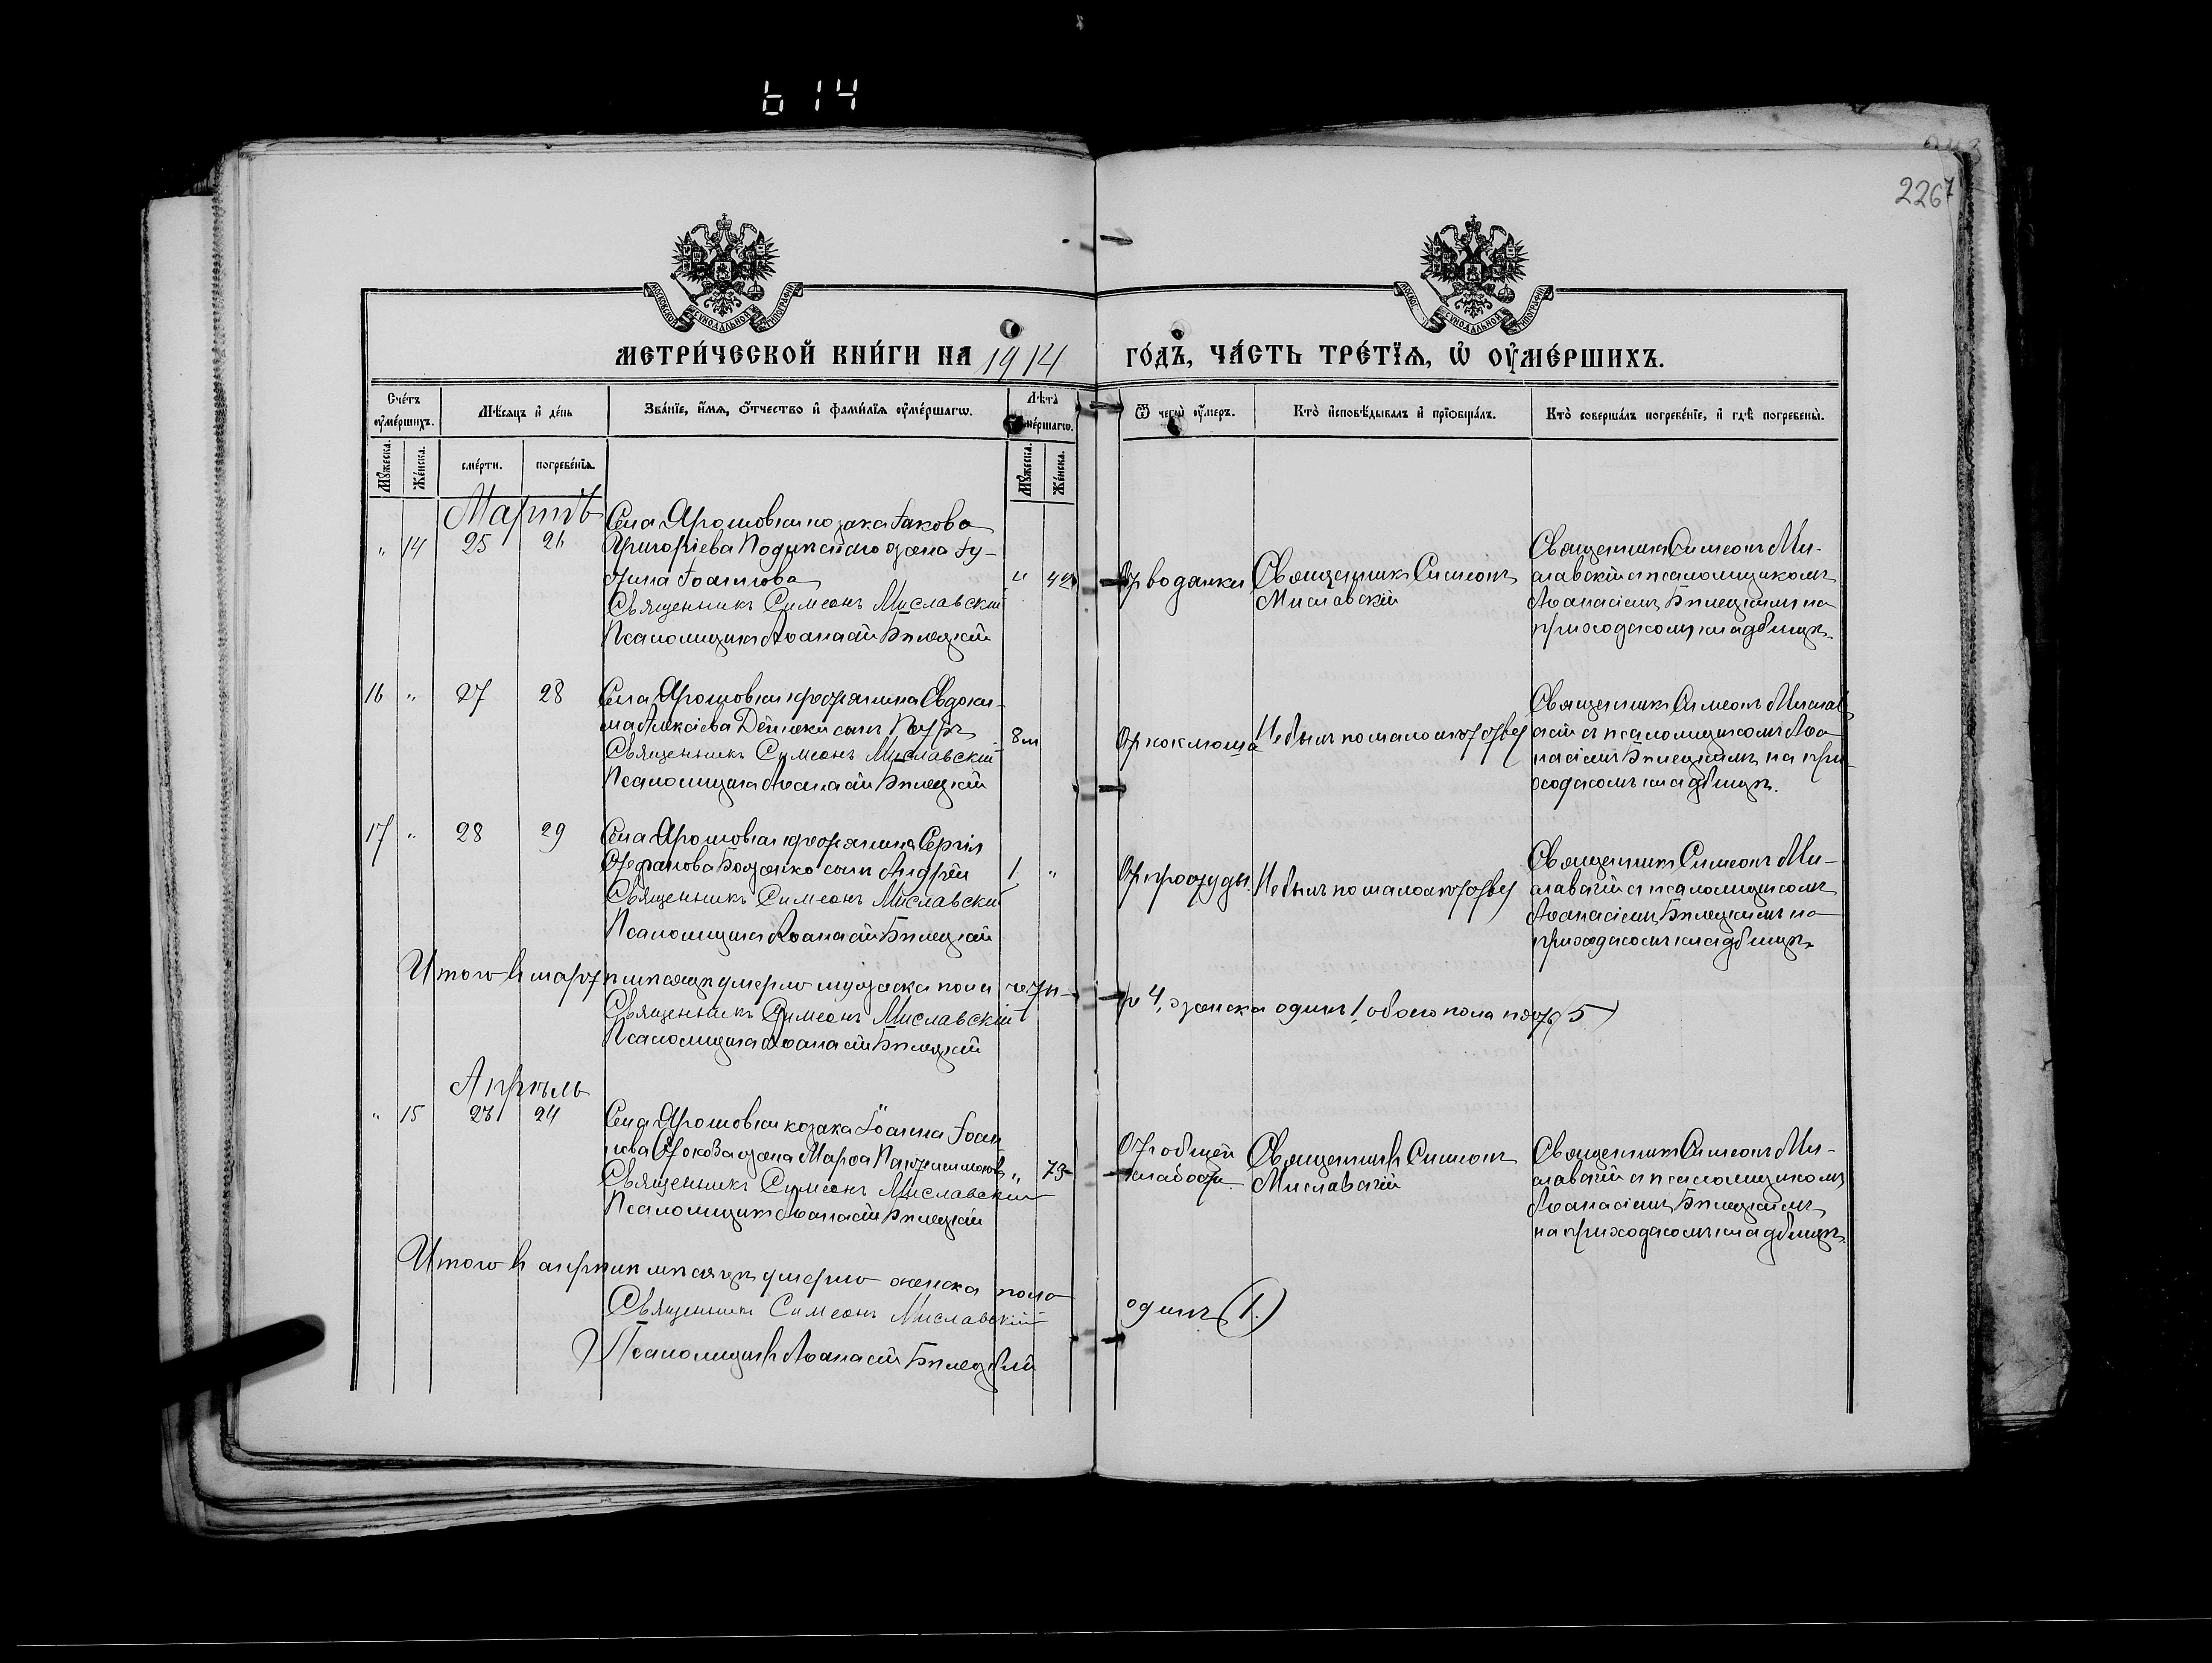 614
2267
МОСКОВСКОЙ СѴНОДАЛЬНОЙ ТИПОГРАФІИ
МЕТРИ́ЧЕСКОЙ КНИ́ГИ НА 1914 ГО́ДЪ, ЧА́СТЬ ТРЕ́ТЇѦ, Ѡ҆ ОУ҆МЕ́РШИХЪ.
Сче́тъ оу҆ме́ршихъ.
Мѣ́сяцъ и҆ де́нь
Зва́нїе, и҆́мя, ѻ҆́тчество и҆ фами́лїя оу҆ме́ршагѡ.
Лѣ́та
ме́ршагѡ.
Ѿ чегѡ̀ оу҆́меръ.
Кто̀ и҆сповѣ́дывалъ и҆ прїѡбща́лъ.
Кто̀ соверша́лъ погребе́нїе, и҆ гдѣ̀ погребены̀.
Мꙋ́жеска.
Же́нска.
сме́рти.
погребе́нїя.
Мꙋ́жеска.
Же́нска.
Мартъ
" 14 25 26
Села Ярошовки козака Іакова
Григоріева жена Iу-
стина Іоаннова
" 42
Священникъ Симеонъ Миславскій
Псаломщикъ Аѳанасій Бѣлецкій
От водянки
Священникъ Симеонъ
Миславскій
Священникъ Симеонъ Ми-
славскій съ псаломщикомъ
Аѳанасіемъ Бѣлецкимъ на
приходскомъ кладбищѣ.
16 " 27 28
Села Ярошовки крестьянина Евдоки-
ма Алексіева сынъ Петръ
8 м
Священникъ Симеонъ Миславскій
Псаломщикъ Аѳанасій Бѣлецкій
От коклюша
Не былъ по малолѣтству
Священникъ Симеонъ Мислав
скій съ псаломщикомъ Аѳа
насіемъ Бѣлецкимъ на при-
ходскомъ кладбищѣ.
17 " 28 29
Села Ярошовки крестьянина Сергія
Стефанова Боженко сынъ Андрей
1 "
Священникъ Симеонъ Миславскій
Псаломщикъ Аѳанасій Бѣлецкій
От простуды.
Не былъ по малолѣтству
Священникъ Симеонъ Ми-
славскій съ псаломщикомъ
Аѳанасіемъ Бѣлецкимъ на
приходскомъ кладбищѣ.
Итого въ мартѣ мѣсяцѣ умерло мужеска пола четы-
ре 4, женска одинъ 1, обоего пола пять (5)
Священникъ Симеонъ Миславскій
Псаломщикъ Аѳанасій Бѣлецкій
Апрѣль
" 15 23 24
Села Ярошовки козака Іоанна Іоан
нова жена Марѳа
" 73
Священникъ Симеонъ Миславскій
Псаломщикъ Аѳанасій Бѣлецкій
От общей
слабости
Священникъ Симеонъ
Миславскій
Священникъ Симеонъ Ми-
славскій съ псаломщикомъ
Аѳанасіемъ Бѣлецкимъ
на приходскомъ кладбищѣ.
Итого въ апрѣлѣ мѣсяцѣ умерло женска пола
одинъ (1.)
Священникъ Симеонъ Миславскій
Псаломщикъ Аѳанасій Бѣлецкій